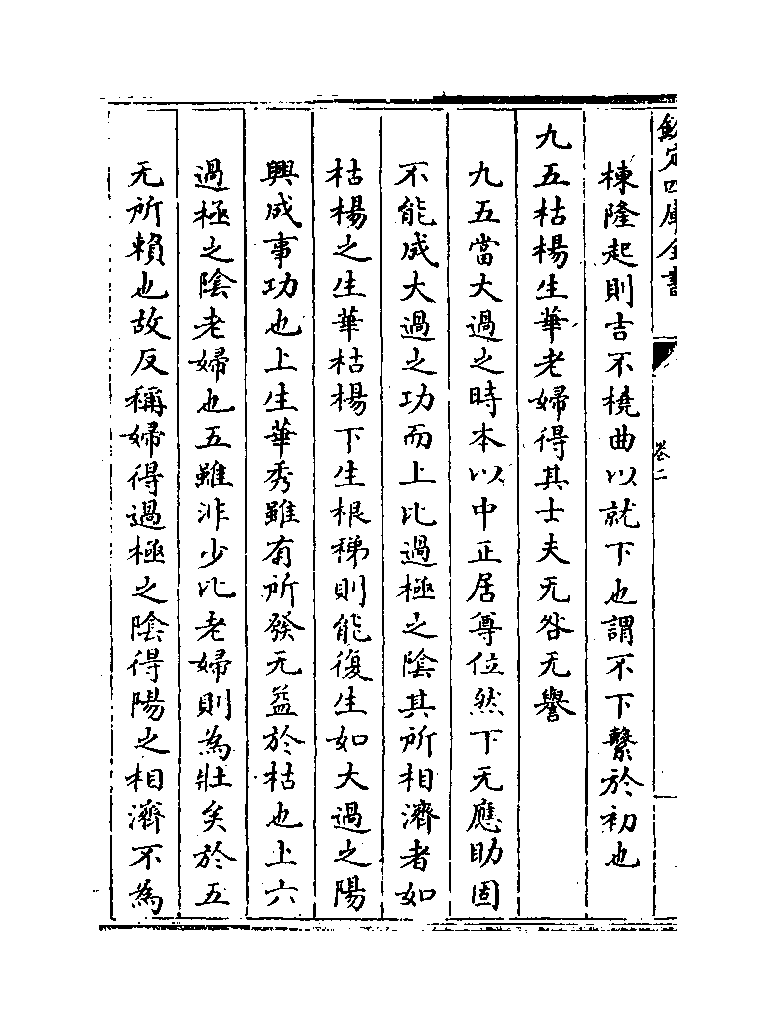 欽定四庫全書
卷二
棟隆起則吉不橈曲以就下也謂不下繫於初也
九五枯楊生華老婦得其士夫无咎无譽
九五當大過之時本以中正居尊位然下无應助固
不能成大過之功而上比過極之陰其所相濟者如
枯楊之生華枯楊下生根稊則能復生如大過之陽
興成事功也上生華秀雖有所發无益於枯也上六
過極之陰老婦也五雖非少比老婦則為壯矣於五
无所賴也故反稱婦得過極之陰得陽之相濟不為